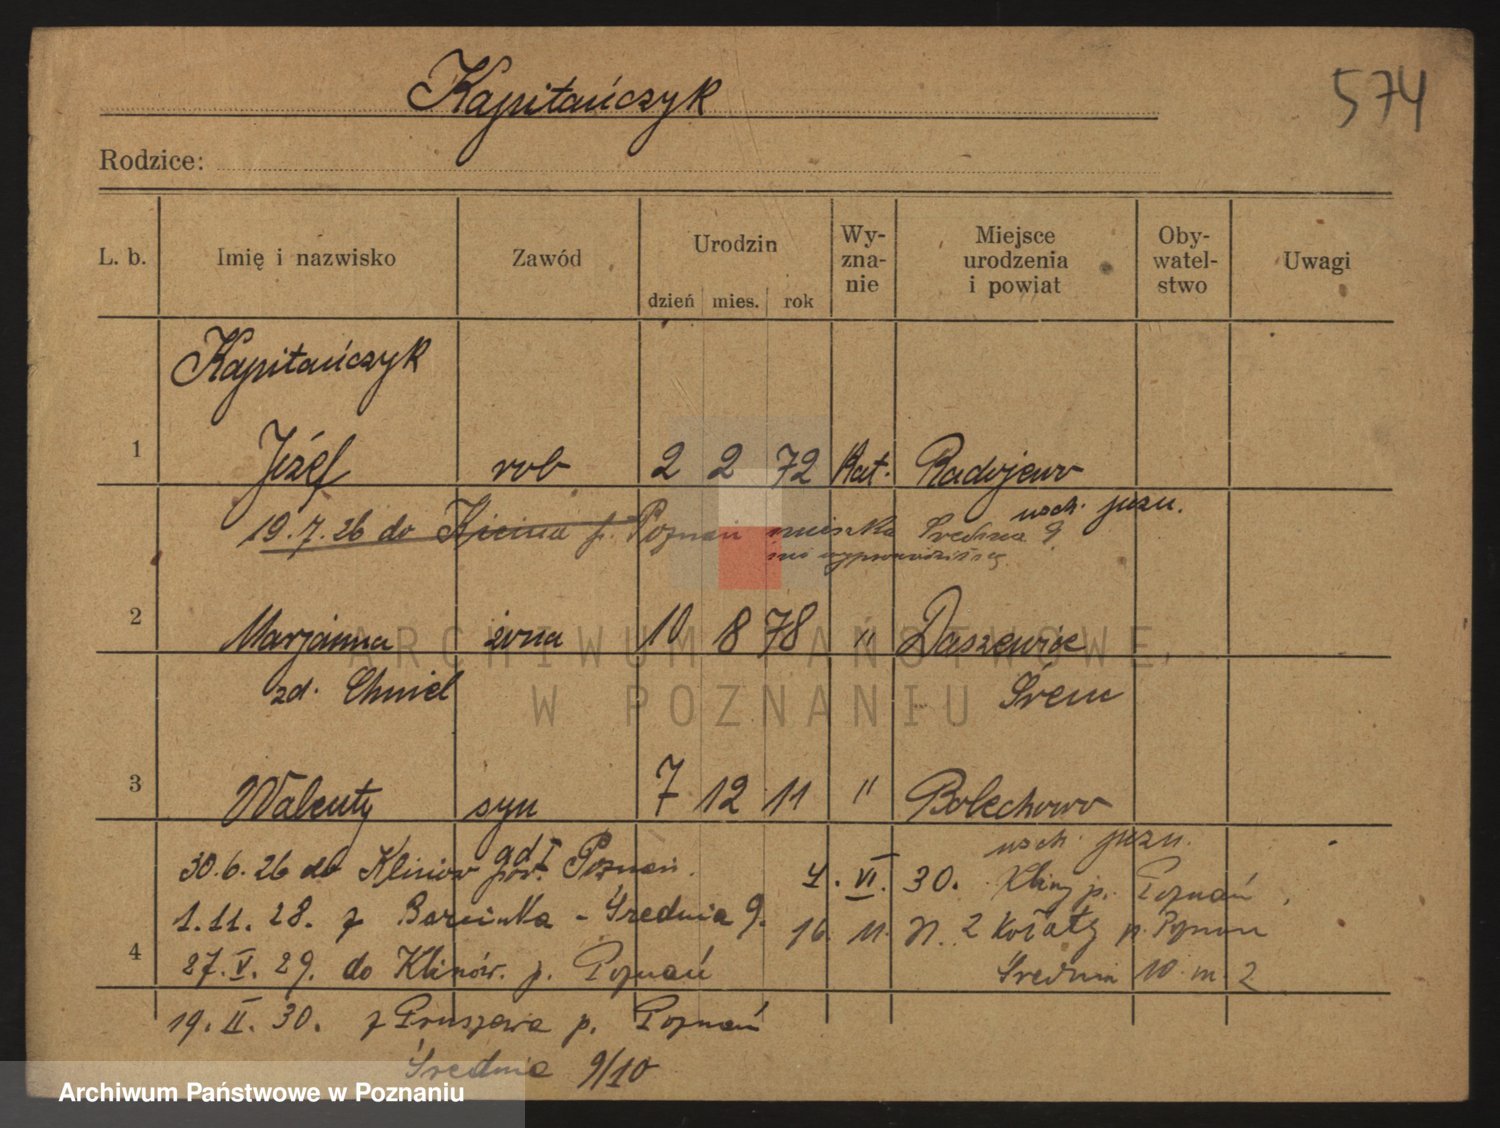 Kapitańczyk
574
Rodzice:
L. b. Imię i nazwisko Zawód Urodzin dzień mies. rok Wy-zna-nie Miejsce urodzenia i powiat Oby-watel-stwo Uwagi
Kapitańczyk
1 Józef rob 2 2 72 Kat. Radojewo
wsch. pozn.
19.7.26 do Kicina p. Poznań mieszka Średnia 9
nie wyprowadził się
2 Marjanna żona 10 8 78 " Daszewice
zd. Chmiel Śrem
3 Walenty syn 7 12 11 " Bolechowo
wsch. pozn.
30.6.26 do Klinów pow. Poznań.
4. VI. 30. Kliny p. Poznań
1.11.28. z Barcinka - Średnia 9.
16. 11. 2 p. Poznań
4 27. V. 29. do Klinów. p. Poznań
Średnia 10 m 2
19. II. 30. z p. Poznań
Średnia 9/10
ARCHIWUM PAŃSTWOWE
W POZNANIU
Archiwum Państwowe w Poznaniu